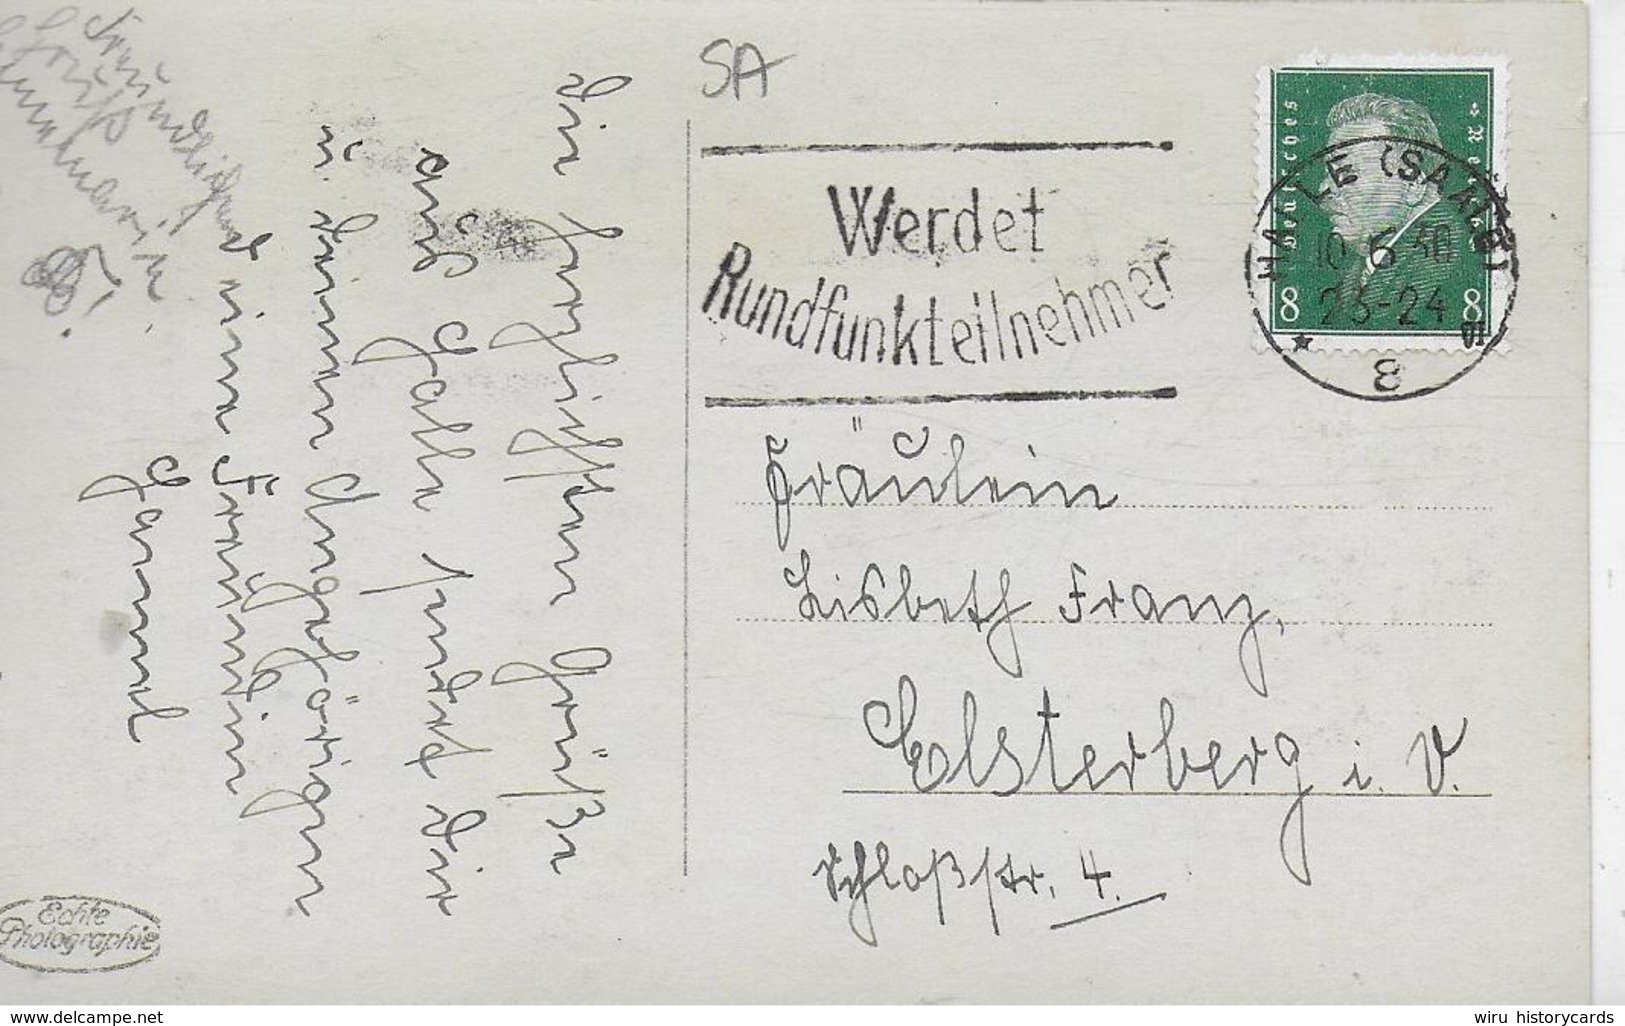 SA
Werdet
Rundfunkteilnehmer
Deutsches Reich
8 8
HALLE (SAALE)
10.6.30
23-24
* 01
8
Fräulein
Lisbeth Franz,
Elsterberg i. V.
Schloßstr. 4.
Die herzlichsten Grüße
aus Halle sendet Dir
u. Deinen Angehörigen
Deine Freundin
Freundlichen
Gruß
Echte
Photographie
www.delcampe.net
wiru historycards